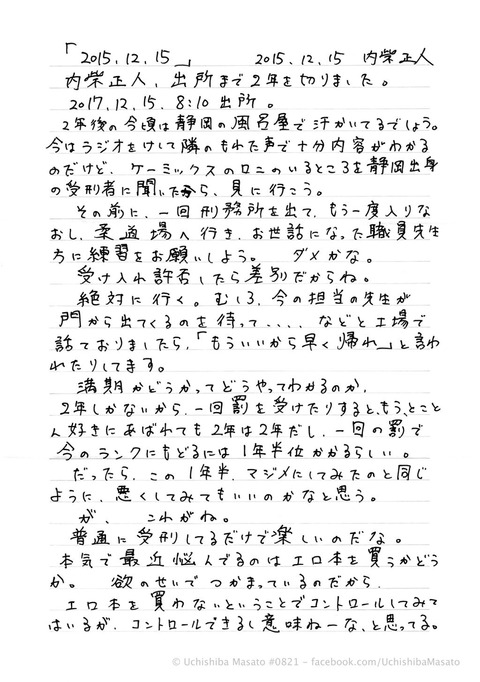 「2015.12.15」 2015.12.15 内柴正人
内柴正人、出所まで2年を切りました。
2017.12.15.8:10出所。
2年後の今頃は静岡の風呂屋で汗かいてるでしょう。
今はラジオをけして隣のもれた声で十分内容がわかる
のだけど、ケーミックスのロニのいるところを静岡出身
の受刑者に聞いたから、見に行こう。
その前に、一回刑務所を出て、もう一度入りな
おし、柔道場へ行き、お世話になった職員先生
方に練習をお願いしよう。 ダメかな。
受け入れ拒否したら差別だからね。
絶対に行く。むしろ、今の担当の先生が
門から出てくるのを待って、、、、などと工場で
話ておりましたら、「もういいから早く帰れ」と言わ
れたりしてます。
満期かどうかってどうやってわかるのか、
2年しかないから、一回罰を受けたりすると、もうとこと
ん好きにあばれても2年は2年だし、一回の罰で
今のランクにもどるには1年半位かかるらしい。
だったら、この1年半、マジメにしてみたのと同じ
ように、悪くしてみてもいいのかなと思う。
が、 これがね。
普通に受刑してるだけで楽しいのだな。
本気で最近悩んでるのはエロ本を買うかどう
か。 欲のせいでつかまっているのだから、
エロ本を買わないということでコントロールしてみて
はいるが、コントロールできるし意味ねーな、と思ってる。
© Uchishiba Masato #0821 – facebook.com/UchishibaMasato